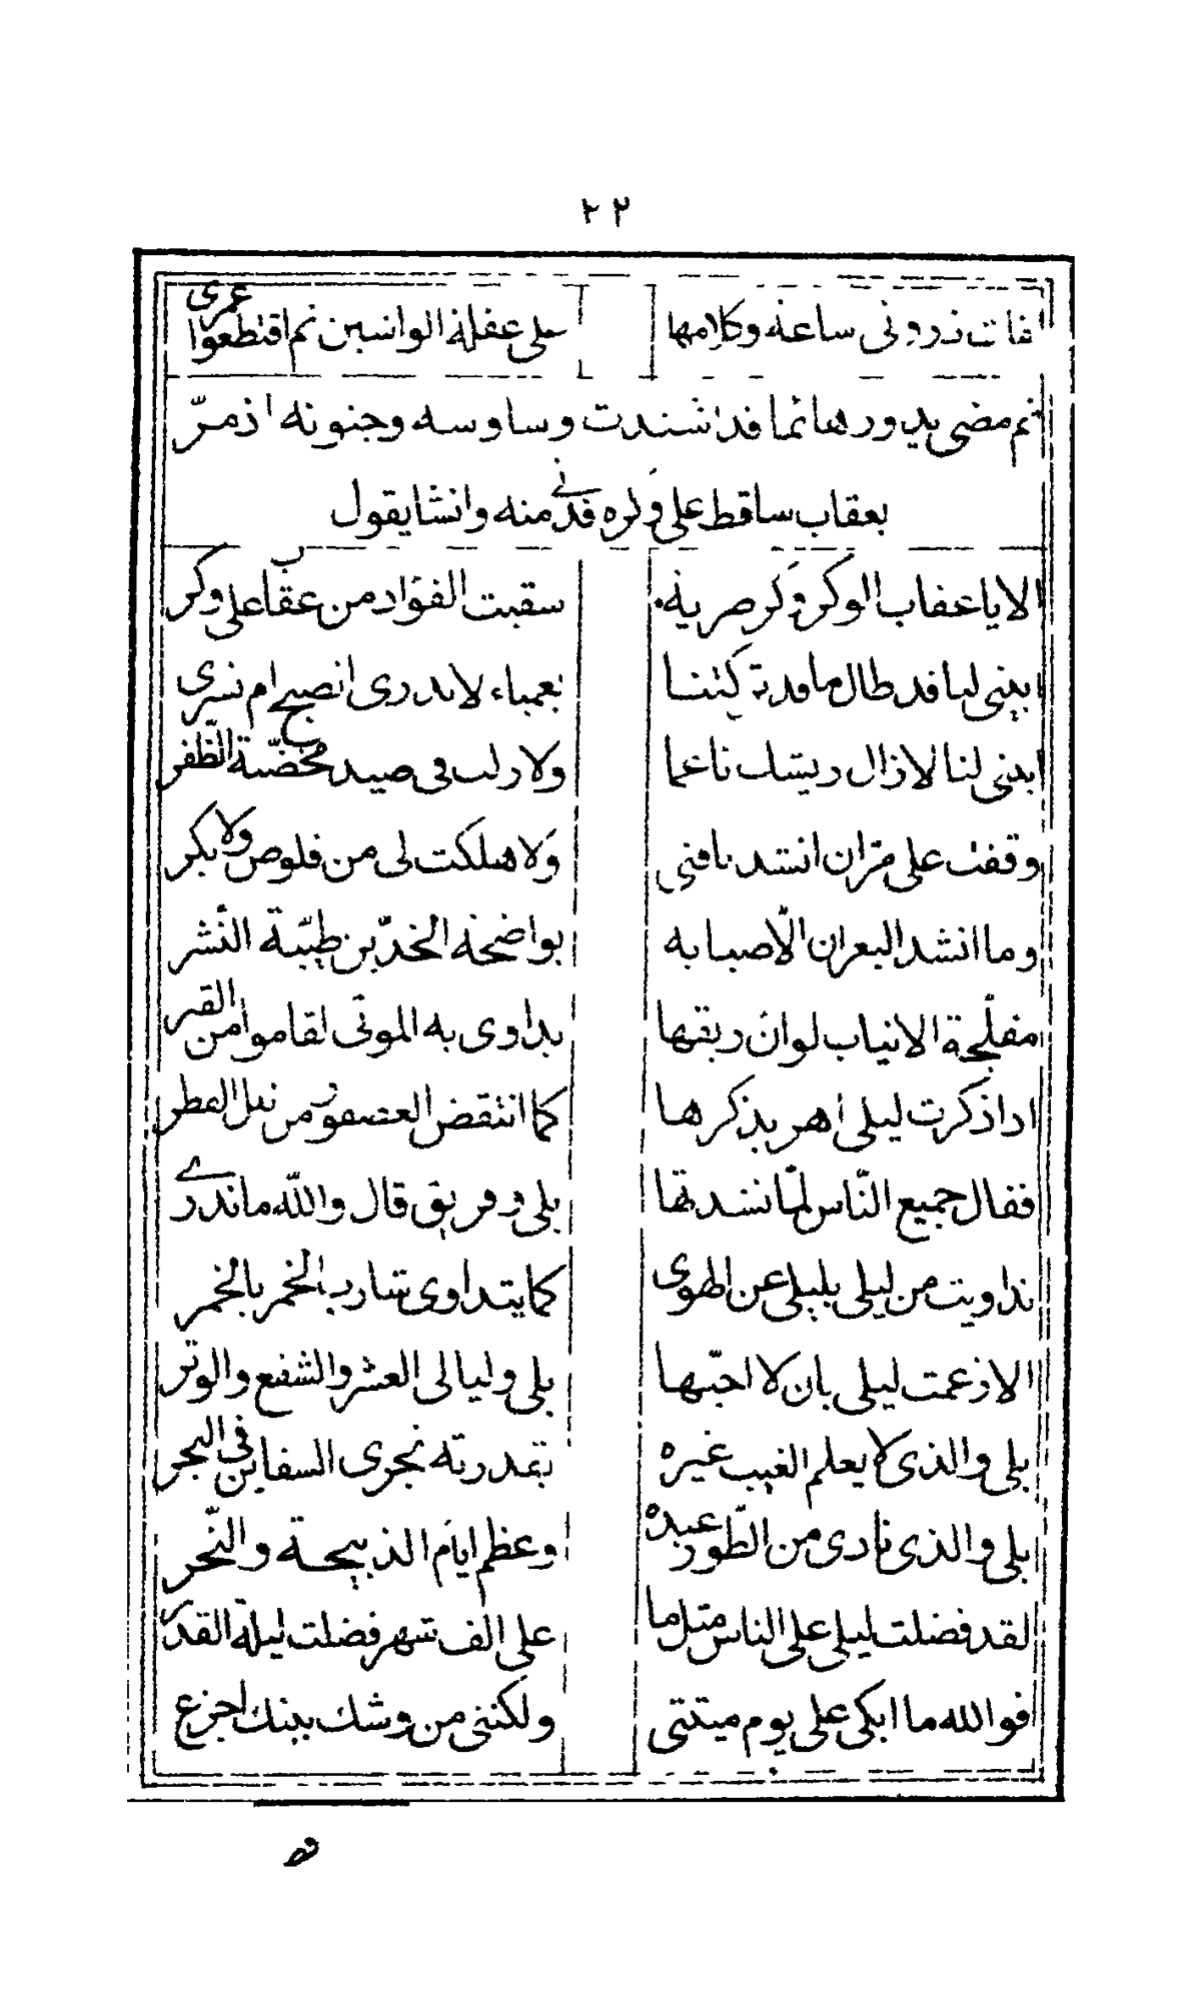 ٢٢
فان تذروني ساعة وكلامها على غفلة الواشين ثم اقطعوا عمرى
ثم مضى يدور هائما قد اشتدت وساوسه وجنونه اذ مرّ
بعقاب ساقط على وكره فدنى منه وانشا يقول
الا يا عقاب الوكر وكر ضرية سقيت الفؤاد من عقاب على وكر
ابينى لنا قد طال ما قد تركتنا بعمياء لا ندرى انصبح ام نسرى
ابينى لنا لا زال ريشك ناعما ولا زلت في صيد مخضّبة الظّفر
وقفت على مرّان انشد ناقتى ولا هلكت لى من قلوص ولا بكر
وما انشد البعران الّا صبابه بواضحة الخدّين طيّبة النّشر
مفلّجة الانياب لو انّ ريقها يداوى به الموتى لقاموا من القبر
اذا ذكرت ليلى اهر بذكرها كما انتقض العصفور من بلل القطر
فقال جميع النّاس لمّا نشدتها بلى وفريق قال والله ما ندرى
تداويت من ليلى بليلى عن الهوى كما يتداوى شارب الخمر بالخمر
الا زعمت ليلى بان لا احبّها بلى وليالى العشر والشفع والوتر
بلى والذى لا يعلم الغيب غيره بقدرته تجرى السفاين في البحر
بلى والذى نادى من الطّور عبده وعظم ايّام الذبيحة والنّحر
لقد فضلت ليلى على الناس مثل ما على الف شهر فضلت ليلة القدر
فوالله ما ابكى على يوم ميتتى ولكننى من وشك بينك اجزع